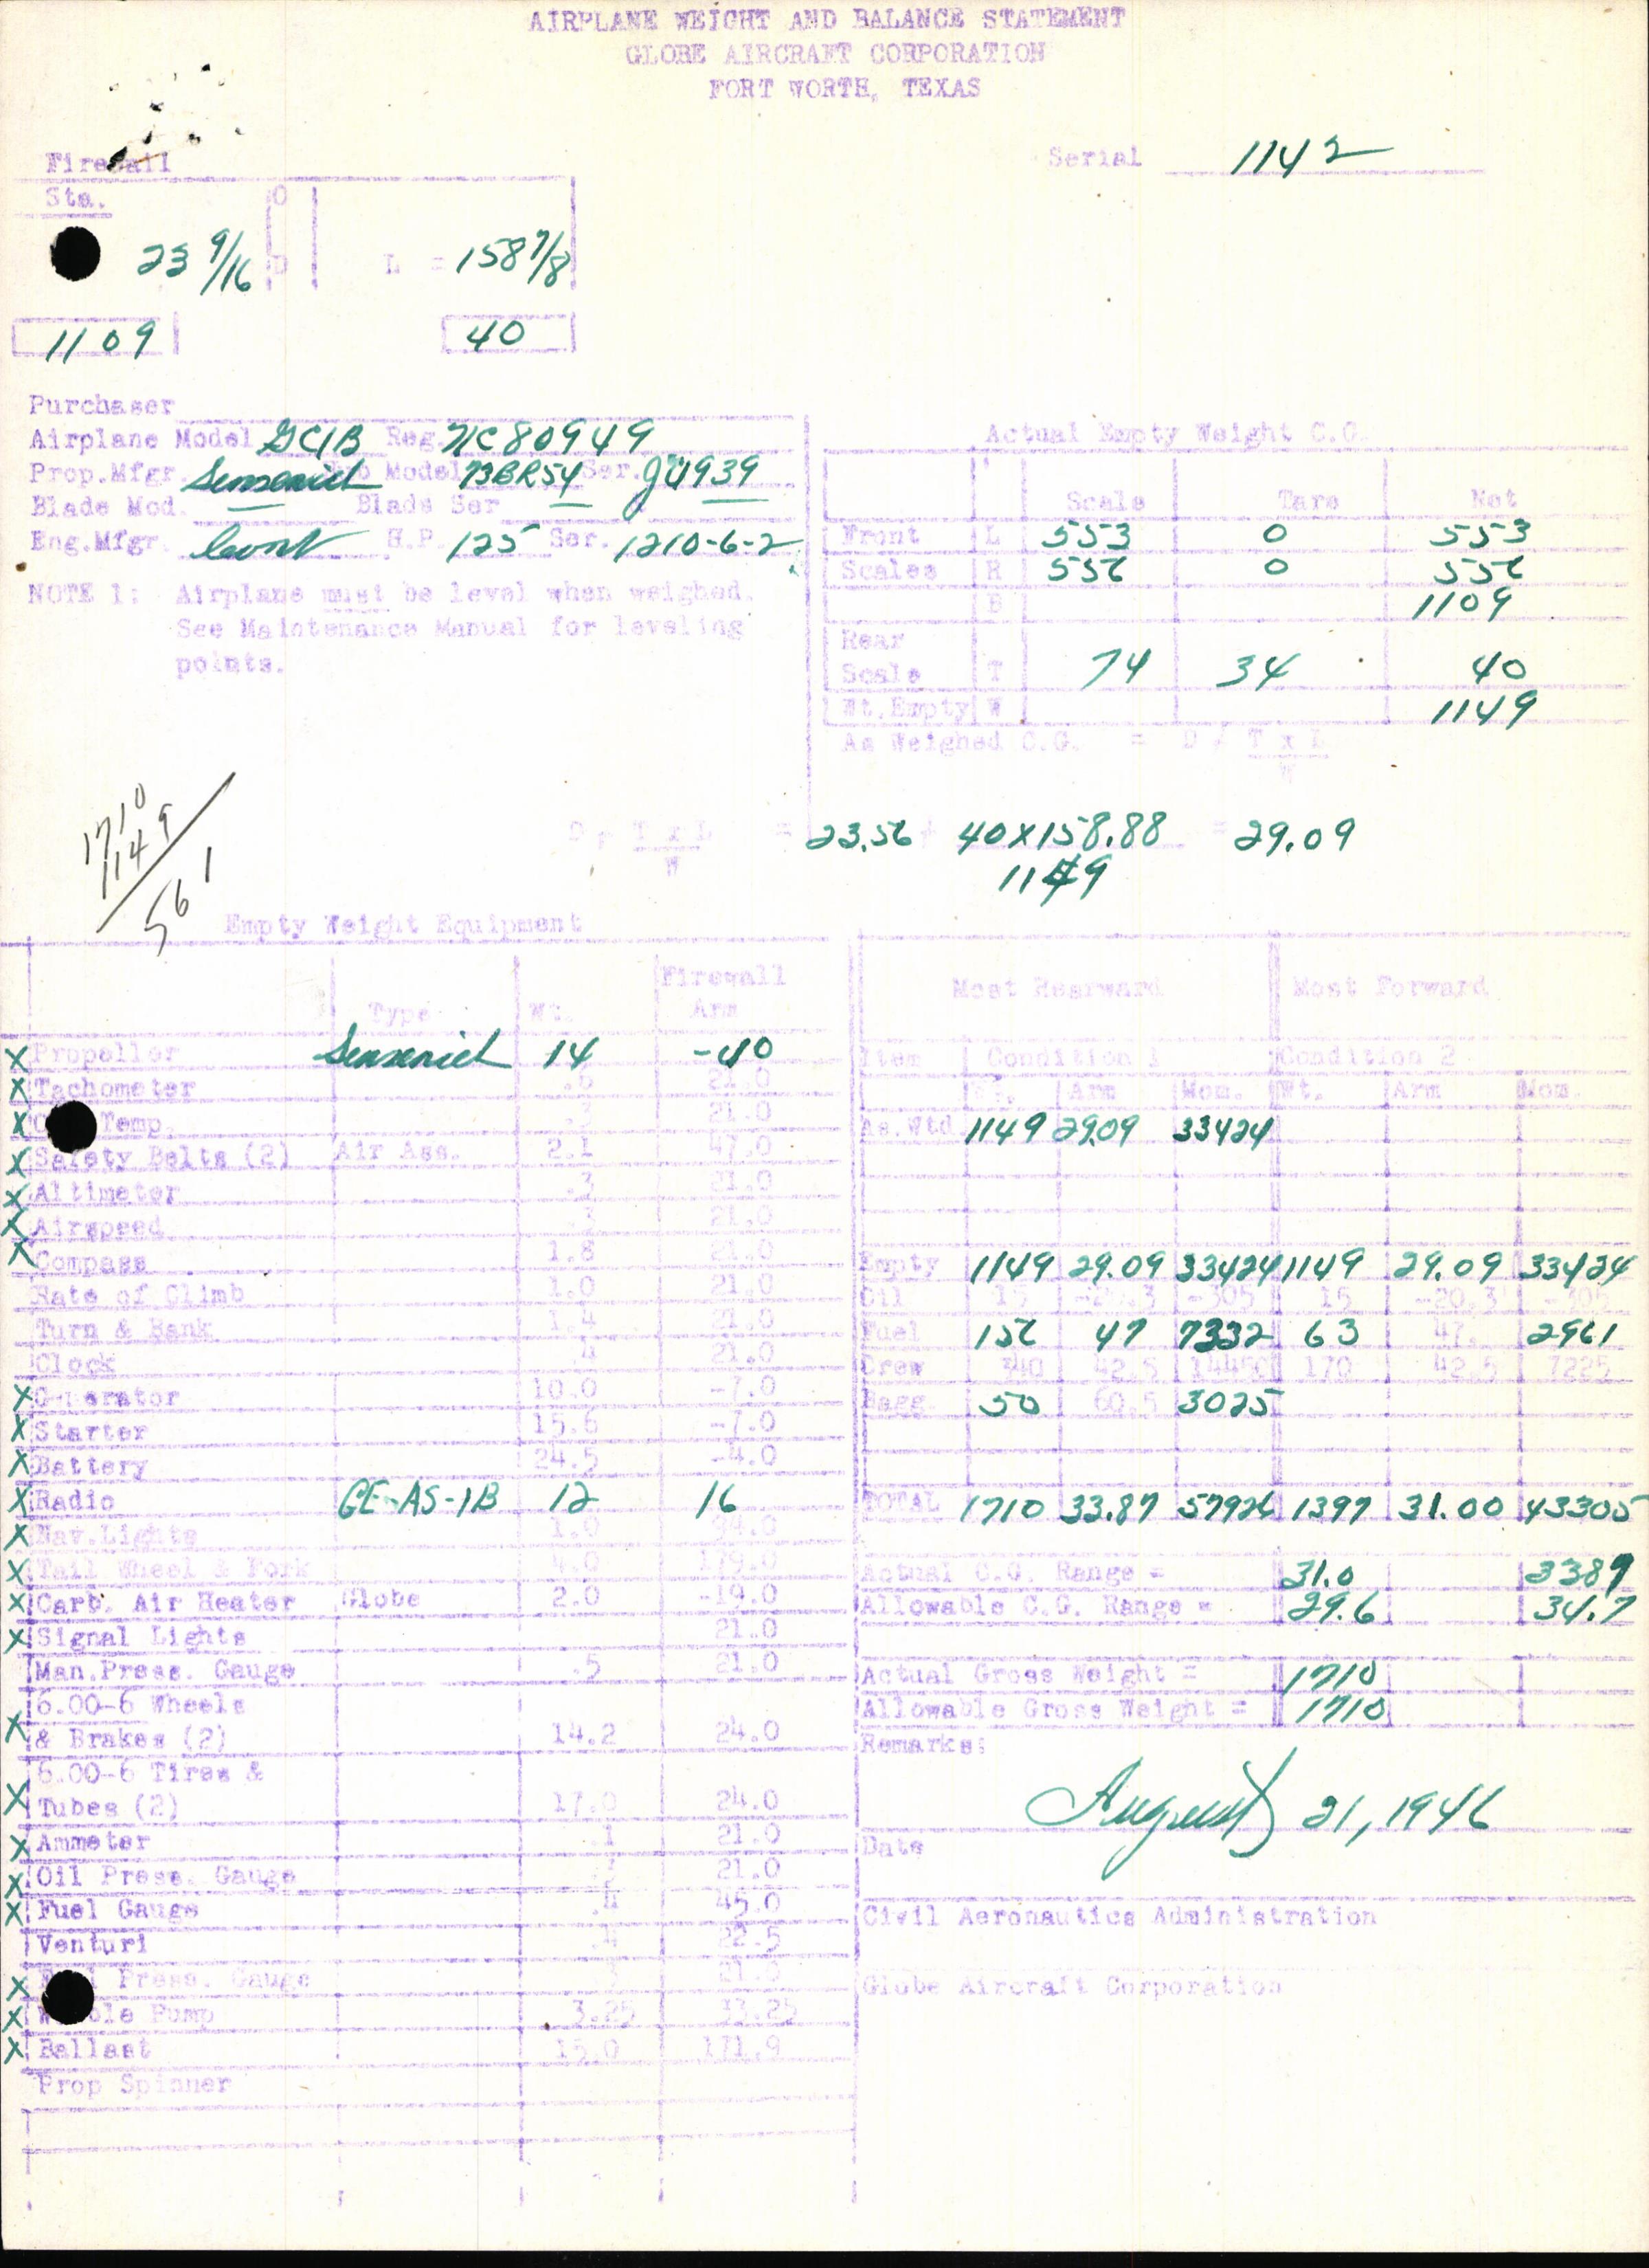 AIRPLANE WEIGHT AND BALANCE STATEMENT
GLOBE AIRCRAFT CORPORATION
FORT WORTH, TEXAS
Serial 1142
Firewall
Sta.
O
23 9/16 D L = 158 7/8
1109 40
Purchaser
Airplane Model GC1B Reg. NC80949
Prop.Mfgr. Sensenich Model 73BR54 Ser.
Blade Mod. — Blade Ser — —
Eng.Mfgr. Cont H.P. 125 Ser. 1210-6-2
NOTE 1: Airplane must be level when weighed.
See Maintenance Manual for leveling
points.
Actual Empty Weight C.G.
Scale Tare Net
Front L 553 0 553
Scales R 556 0 556
1109
Rear
Scale T 74 34 40
Wt.Empty W 1149
As Weighed C.G. = D / T x L
W
D / T x L = 23.56 + 40X158.88 = 29.09
W 1149
1710
1149
561
Empty Weight Equipment
Type Wt. Firewall Arm
X Propeller Sensenich 14 -40
X Tachometer 21.0
X Temp. 21.0
X Safety Belts (2) Air Ass. 2.1 47.0
X Altimeter .3 21.0
X Airspeed .3 21.0
X Compass 1.8 21.0
Rate of Climb 1.0 21.0
Turn & Bank 1.4 21.0
Clock .4 21.0
X Generator 10.0 -7.0
X Starter 15.6 -7.0
X Battery 24.5 -4.0
X Radio GE-AS-1B 12 16
X Nav.Lights 1.0
X Tail Wheel & Fork 4.0 179.0
X Carb. Air Heater Globe 2.0 -19.0
X Signal Lights 21.0
Man.Press. Gauge .5 21.0
6.00-6 Wheels
X & Brakes (2) 14.2 24.0
6.00-6 Tires &
X Tubes (2) 17.0 24.0
X Ammeter .1 21.0
X Oil Press. Gauge 21.0
X Fuel Gauge .4 45.0
Venturi .4 22.5
X Press. Gauge
X Pump 3.25
X Ballast 15.0 171.9
Prop Spinner
Most Rearward Most Forward
Item Condition 1 Condition 2
Wt. Arm Mom. Wt. Arm Mom.
As.Wtd. 1149 29.09 33424
Empty 1149 29.09 33424 1149 29.09 33424
Oil 15 -20.3 -305 15 -20.3 -305
Fuel 156 47 7332 63 47. 2961
Crew 340 42.5 14450 170 42.5 7225
Bagg. 50 60.5 3025
TOTAL 1710 33.87 57926 1397 31.00 43305
Actual C.G. Range = 31.0 3387
Allowable C.G. Range = 29.6 34.7
Actual Gross Weight = 1710
Allowable Gross Weight = 1710
Remarks:
August 21, 1946
Date
Civil Aeronautics Administration
Globe Aircraft Corporation